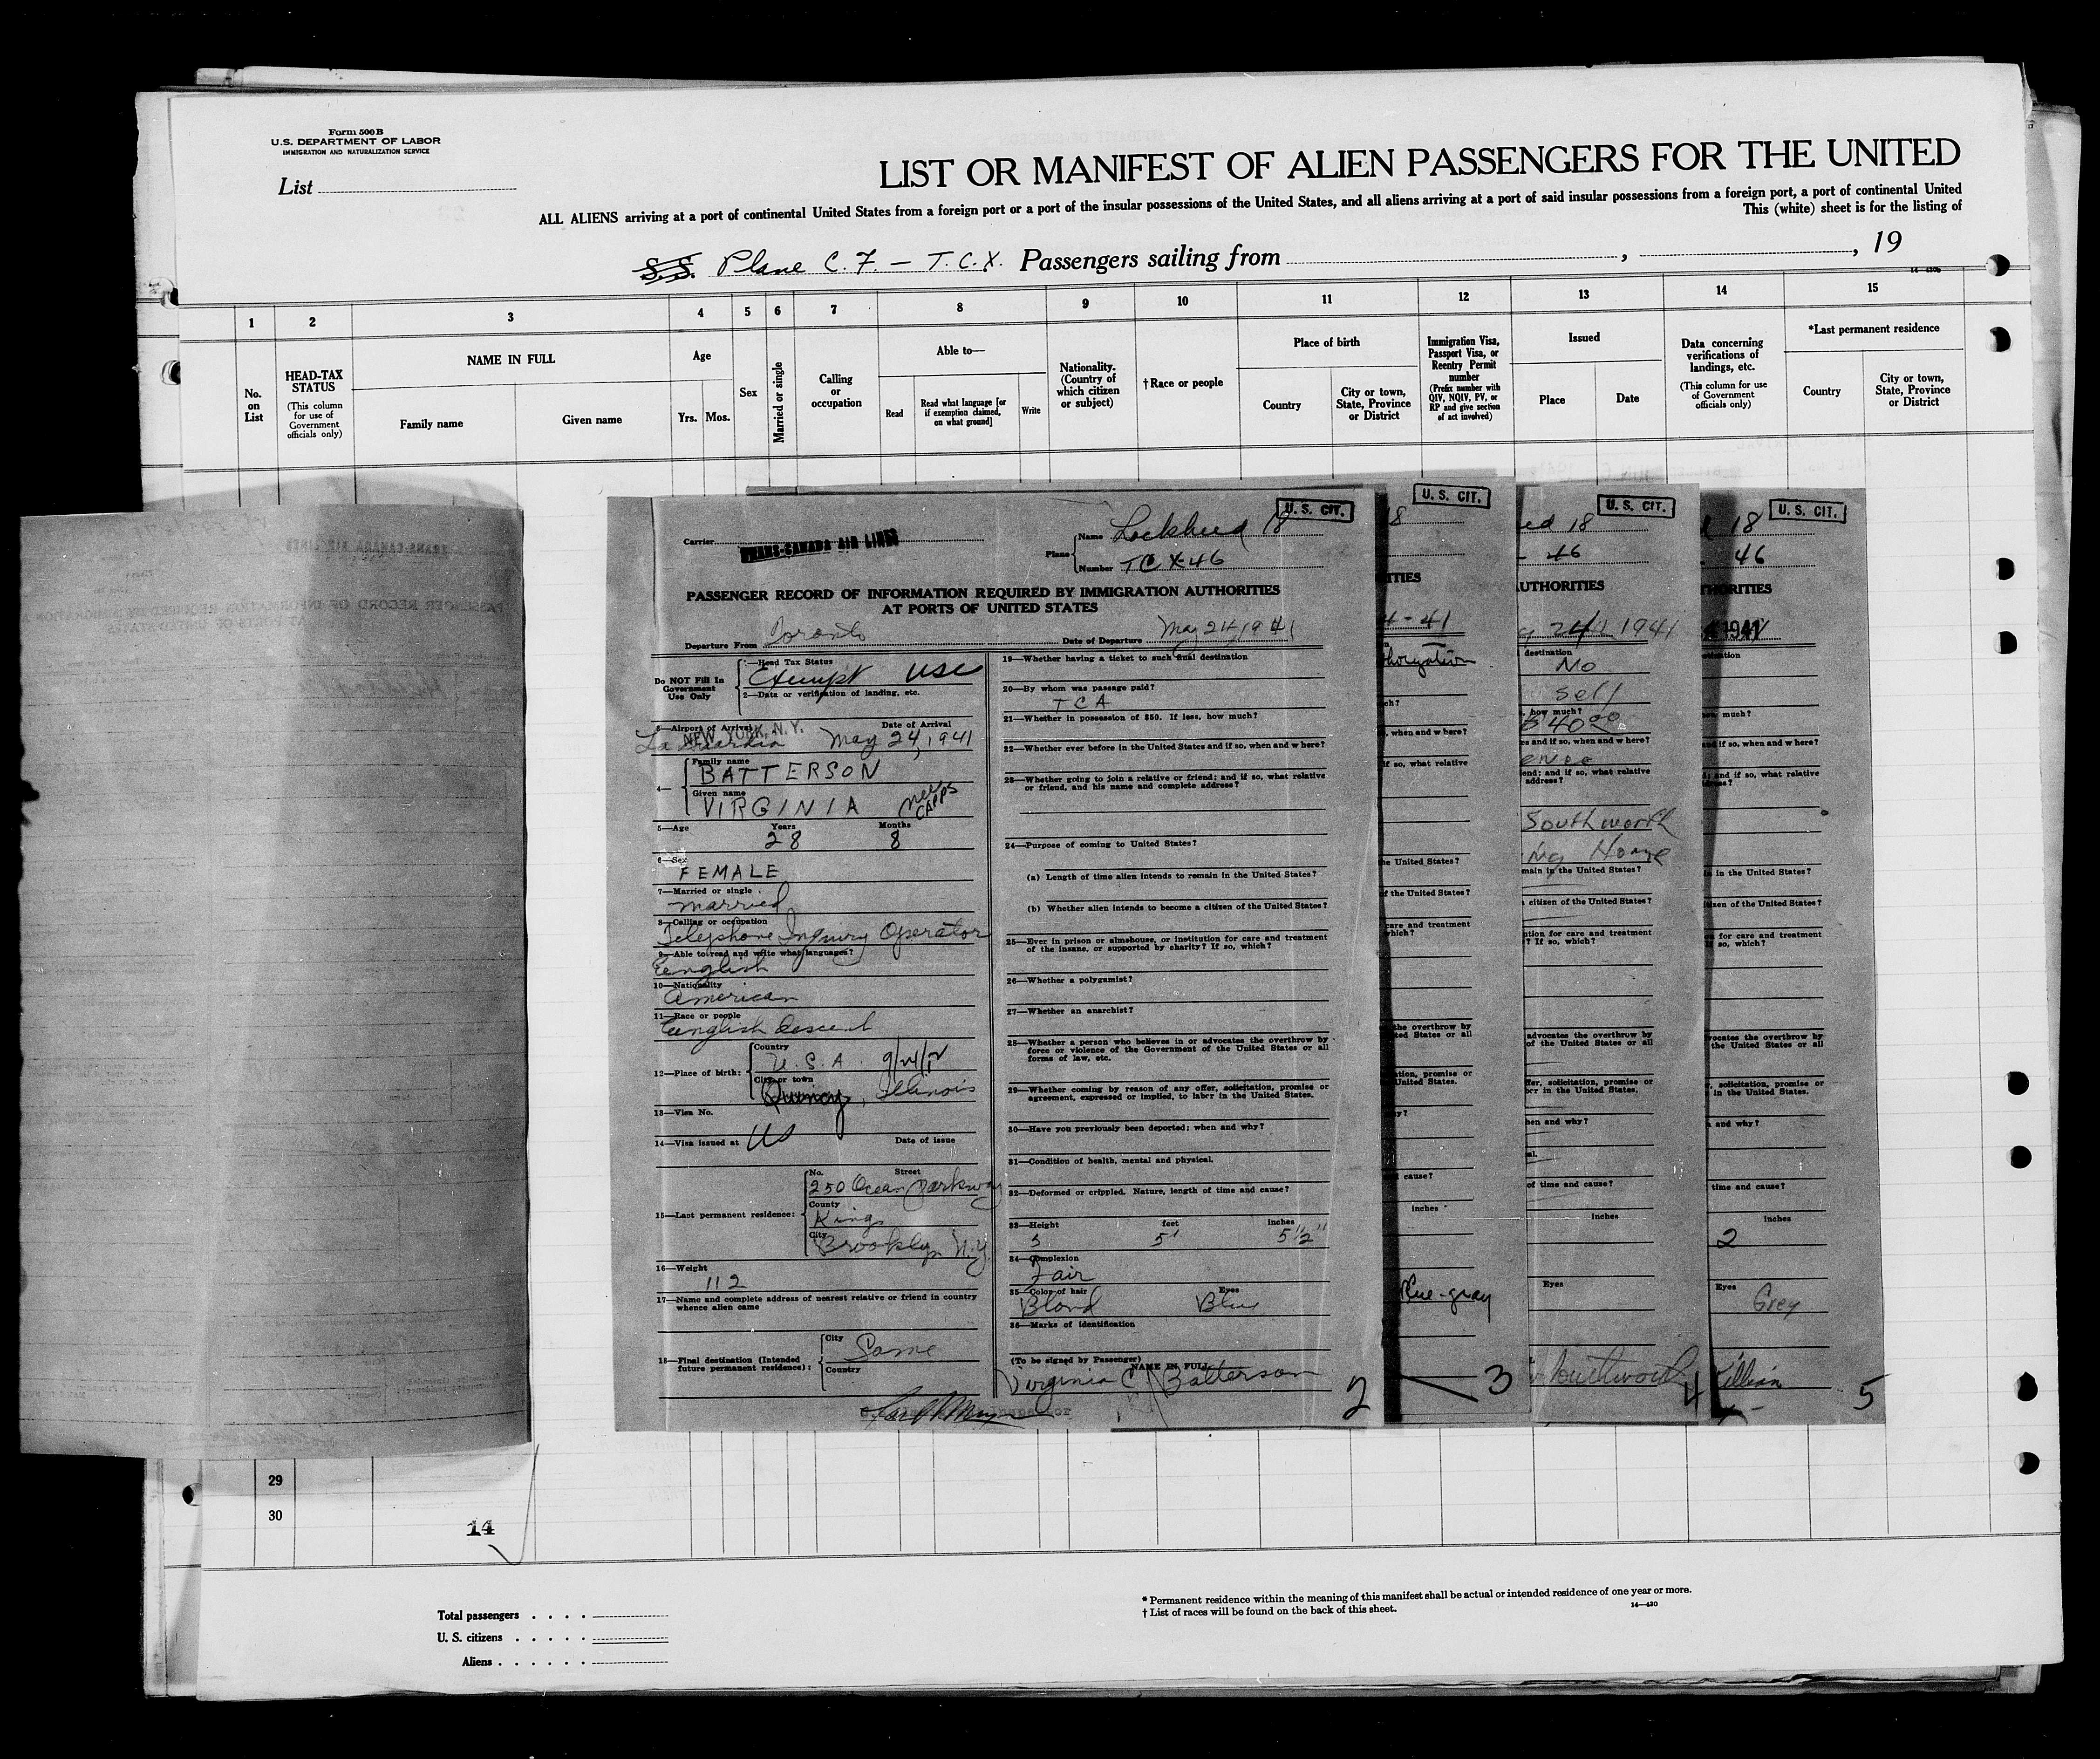 Form 500 B
U.S. DEPARTMENT OF LABOR
IMMIGRATION AND NATURALIZATION SERVICE
List
LIST OR MANIFEST OF ALIEN PASSENGERS FOR THE UNITED
ALL ALIENS arriving at a port of continental United States from a foreign port or a port of the insular possessions of the United States, and all aliens arriving at a port of said insular possessions from a foreign port, a port of continental United
This (white) sheet is for the listing of
S.S. Plane C. F. - T. C. X. Passengers sailing from , , 19
1 2 3 4 5 6 7 8 9 10 11 12 13 14 15
No. on List
HEAD-TAX STATUS
(This column for use of Government officials only)
NAME IN FULL
Family name Given name
Age
Yrs. Mos.
Sex
Married or single
Calling or occupation
Able to—
Read
Read what language [or if exemption claimed, on what ground]
Write
Nationality. (Country of which citizen or subject)
†Race or people
Place of birth
Country
City or town, State, Province or District
Immigration Visa, Passport Visa, or Reentry Permit number
(Prefix number with QIV, NQIV, PV, or RP and give section of act involved)
Issued
Place Date
Data concerning verifications of landings, etc.
(This column for use of Government officials only)
*Last permanent residence
Country
City or town, State, Province or District
U. S. CIT.
Carrier TRANS-CANADA AIR LINES
Plane
Name Lockheed 18
Number TCX-46
PASSENGER RECORD OF INFORMATION REQUIRED BY IMMIGRATION AUTHORITIES
AT PORTS OF UNITED STATES
Departure From Toronto Date of Departure May 24, 1941
Do NOT Fill In
Government
Use Only
1—Head Tax Status
Exempt USC
2—Data or verification of landing, etc.
3—Airport of Arrival Date of Arrival
NEW YORK, N.Y.
La Guardia May 24, 1941
4— Family name
BATTERSON
Given name
VIRGINIA nee CAPPS
5—Age Years Months
28 8
6—Sex
FEMALE
7—Married or single
married
8—Calling or occupation
Telephone Inquiry Operator
9—Able to read and write what languages?
English
10—Nationality
American
11—Race or people
English descent
12—Place of birth: Country
U. S. A. 9/24/12
City or town
Quincy, Illinois
13—Visa No.
14—Visa issued at US Date of issue
15—Last permanent residence:
No. Street
250 Ocean Parkway
County
Kings
City
Brooklyn N.Y.
16—Weight
112
17—Name and complete address of nearest relative or friend in country
whence alien came
18—Final destination (Intended
future permanent residence):
City
Same
Country
19—Whether having a ticket to such final destination
20—By whom was passage paid?
TCA
21—Whether in possession of $50. If less, how much?
22—Whether ever before in the United States and if so, when and where?
23—Whether going to join a relative or friend; and if so, what relative
or friend, and his name and complete address?
24—Purpose of coming to United States?
(a) Length of time alien intends to remain in the United States?
(b) Whether alien intends to become a citizen of the United States?
25—Ever in prison or almshouse, or institution for care and treatment
of the insane, or supported by charity? If so, which?
26—Whether a polygamist?
27—Whether an anarchist?
28—Whether a person who believes in or advocates the overthrow by
force or violence of the Government of the United States or all
forms of law, etc.
29—Whether coming by reason of any offer, solicitation, promise or
agreement, expressed or implied, to labor in the United States.
30—Have you previously been deported; when and why?
31—Condition of health, mental and physical.
32—Deformed or crippled. Nature, length of time and cause?
33—Height feet inches
5 5' 5 1/2"
34—Complexion
Fair
35—Color of hair Eyes
Blond Blue
36—Marks of identification
(To be signed by Passenger)
NAME IN FULL
Virginia C. Batterson
2
U. S. CIT.
18
4-41
Blue-gray
3
U. S. CIT.
ed 18
46
AUTHORITIES
24 1941
destination
No
self
how much?
40 00
Southworth
Home
inches
Eyes
Southworth
4
U. S. CIT.
18
46
1941
inches
2
Eyes
Grey
Killian
5
29
30
14
Total passengers
U. S. citizens
Aliens
* Permanent residence within the meaning of this manifest shall be actual or intended residence of one year or more.
† List of races will be found on the back of this sheet.